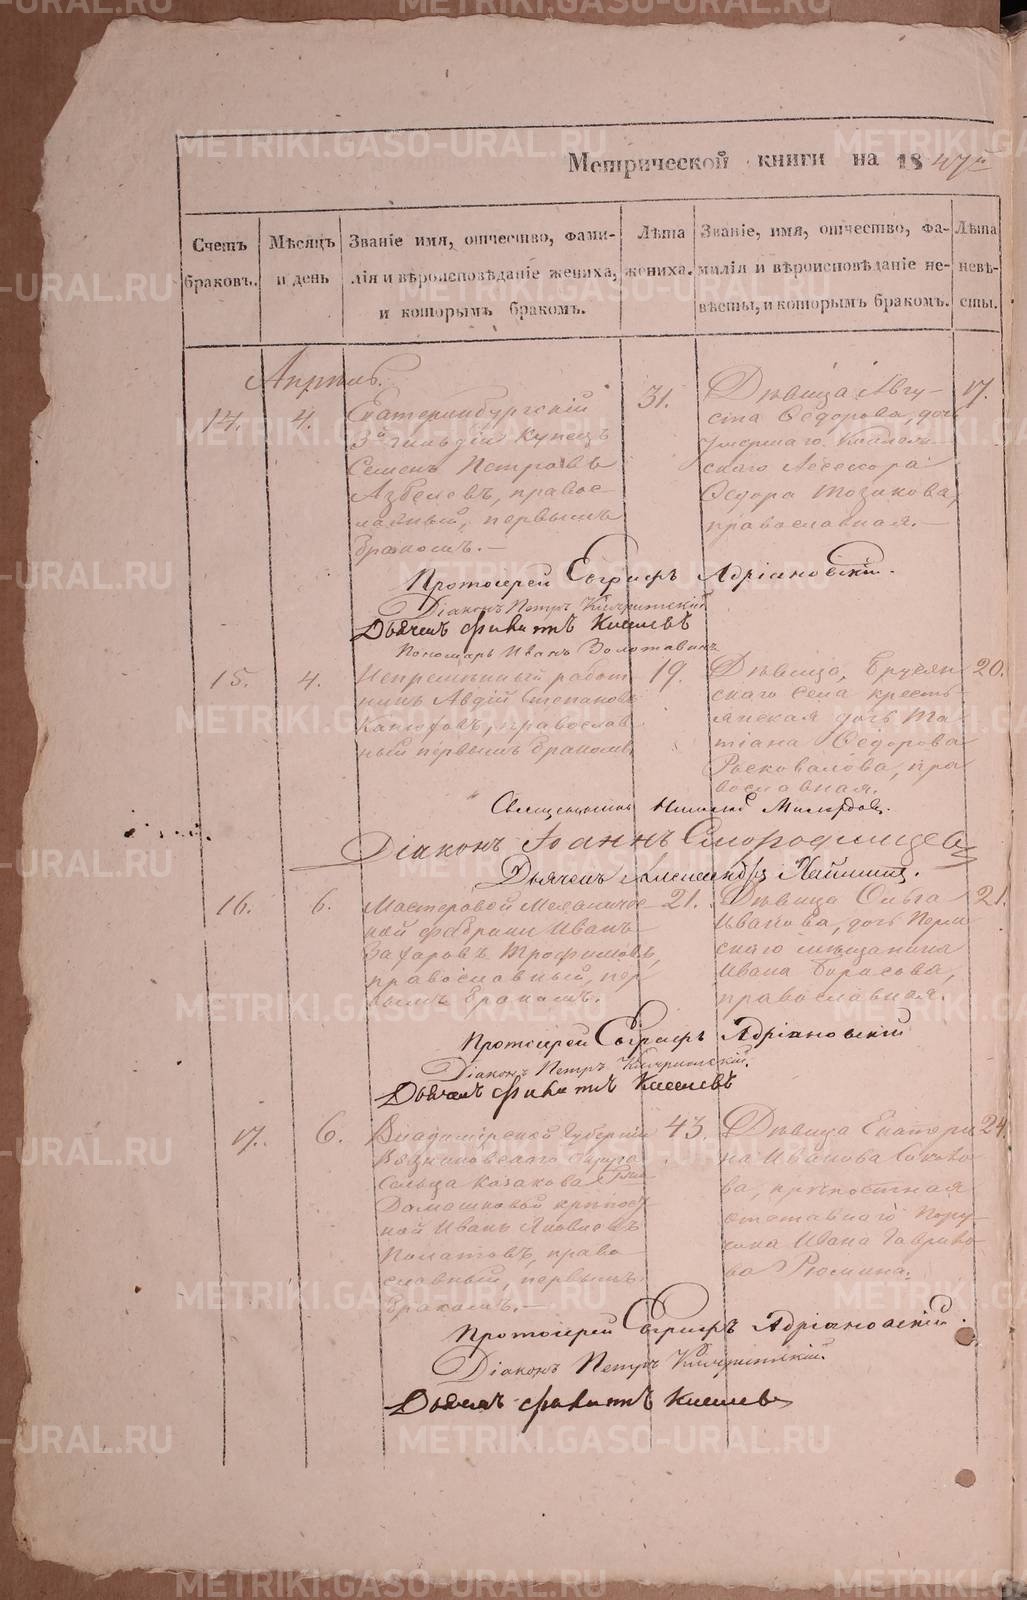 Метрической книги на 1847й
Счетъ браковъ.
Мѣсяцъ и день
Званіе имя, отчество, фами-
лія и вѣроисповѣданіе жениха,
и которымъ бракомъ.
Лѣта
жениха.
Званіе, имя, отчество, фа-
милія и вѣроисповѣданіе не-
вѣсты, и которымъ бракомъ.
Лѣта
невѣ-
сты.
Апрель.
14.
4.
Екатеринбургскій
3й гильдіи купецъ
Семенъ Петровъ
Азбелевъ, правос-
лавный, первымъ
бракомъ.—
31.
Дѣвица Авгу-
ста Ѳедорова, дочь
умершаго Коллеж-
скаго Ассессора
Ѳедора
православная.—
17.
Протоіерей Евграфъ Адріановскій.
Діаконъ Петръ
Дьячекъ Филатъ Киселевъ
Пономарь Иванъ Золотавинъ
15.
4.
Непремѣнный работ-
никъ Авдій Степановъ
православ-
ный первымъ бракомъ
19.
Дѣвица, Брусян-
скаго села кресть-
янская дочь Та-
тіана Ѳедорова
пра-
вославная.
20.
Священникъ Николай
Діаконъ Іоаннъ Смородинцевъ
Дьячекъ Александръ
16.
6.
Мастеровой Механичес-
кой фабрики Иванъ
Захаровъ Трофимовъ,
православный, пер-
вымъ бракомъ.
21.
Дѣвица Ольга
Иванова, дочь Перм-
скаго мѣщанина
Ивана Борисова,
православная.
21.
Протоіерей Евграфъ Адріановскій
Діаконъ Петръ
Дьячекъ Филатъ Киселевъ
17.
6.
Владимірской Губерніи
Вязниковскаго округа
Сельца Казакова
крѣпост-
ной Иванъ Яковлевъ
право-
славный, первымъ
бракомъ.—
43.
Дѣвица Екатери-
на Иванова
крѣпостная
отставнаго Пору-
чика Ивана Гаврило-
ва Рюмина.
24.
Протоіерей Евграфъ Адріановскій.
Діаконъ Петръ
Дьячекъ Филатъ Киселевъ
METRIKI.GASO-URAL.RU